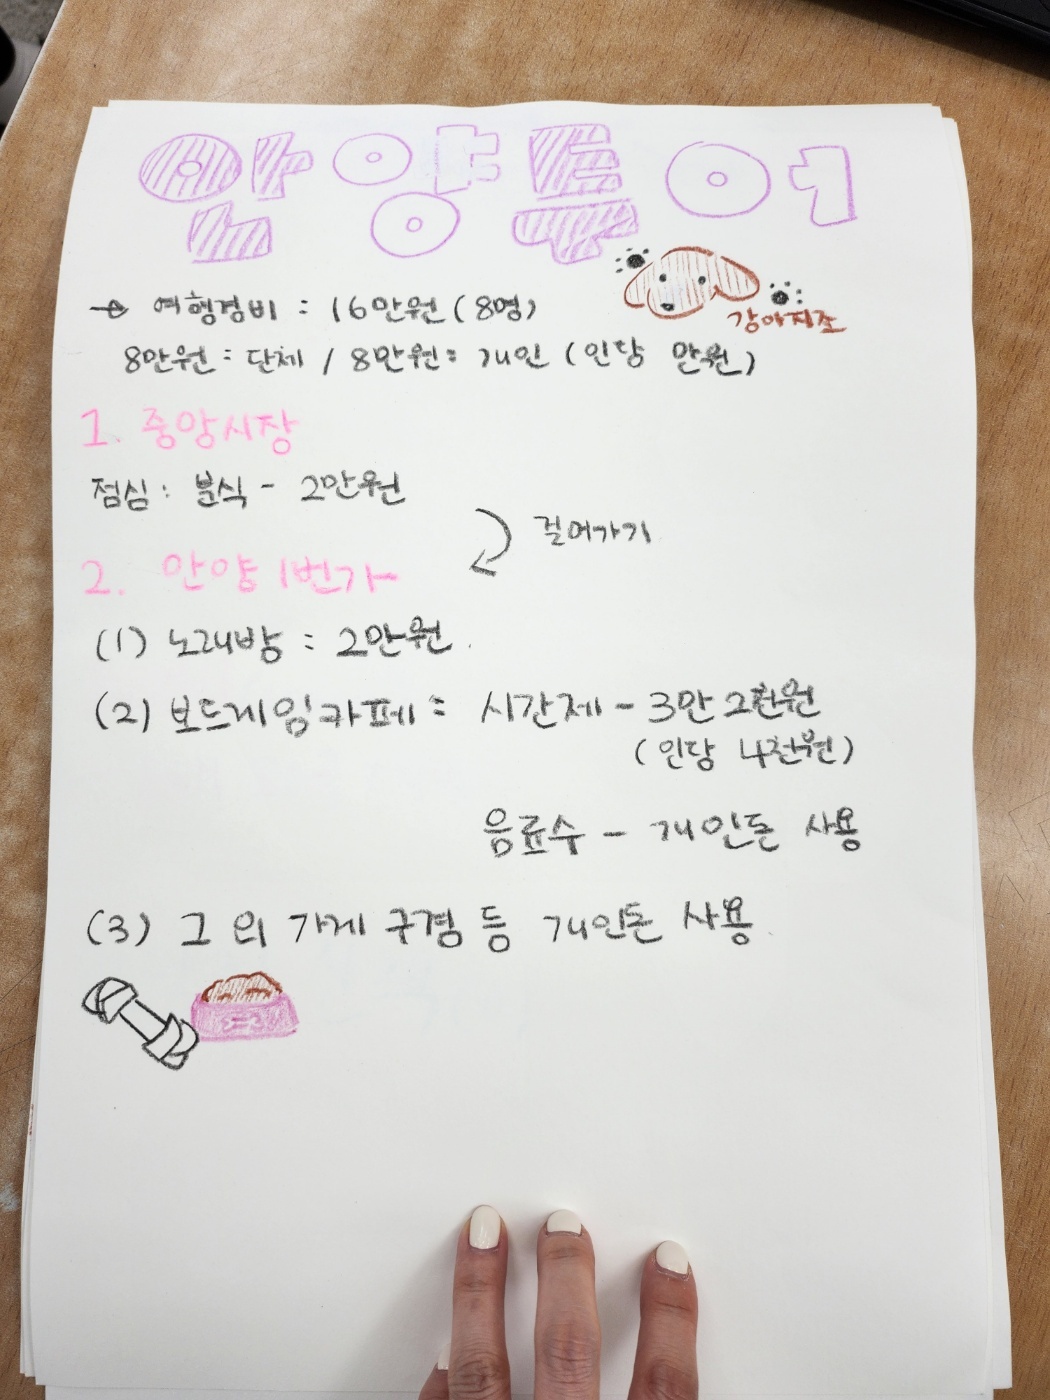 안양투어
강아지조
→ 여행경비 : 16만원 (8명)
8만원 : 단체 / 8만원 : 개인 (인당 만원)
1. 중앙시장
점심 : 분식 - 2만원
걸어가기
2. 안양 1번가
(1) 노래방 : 2만원.
(2) 보드게임카페 : 시간제 - 3만 2천원
(인당 4천원)
음료수 - 개인돈 사용
(3) 그 외 가게 구경 등 개인돈 사용.